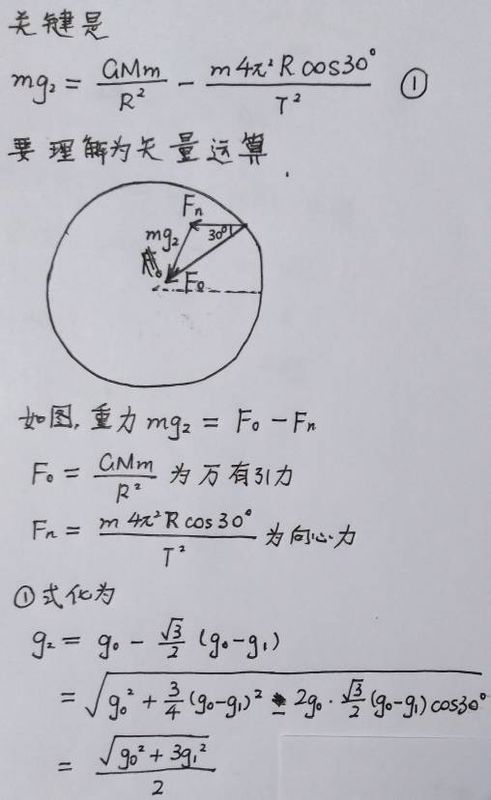 关键是
mg₂ = GMm/R² - m4π²Rcos30°/T² ①
要理解为矢量运算.
Fₙ
mg₂ 30°
F₀
如图,重力mg₂ = F₀ - Fₙ
F₀ = GMm/R² 为万有引力
Fₙ = m4π²Rcos30°/T² 为向心力
①式化为
g₂ = g₀ - √3/2 (g₀-g₁)
= √(g₀² + 3/4 (g₀-g₁)² - 2g₀·√3/2 (g₀-g₁)cos30°)
= √(g₀² + 3g₁²)/2